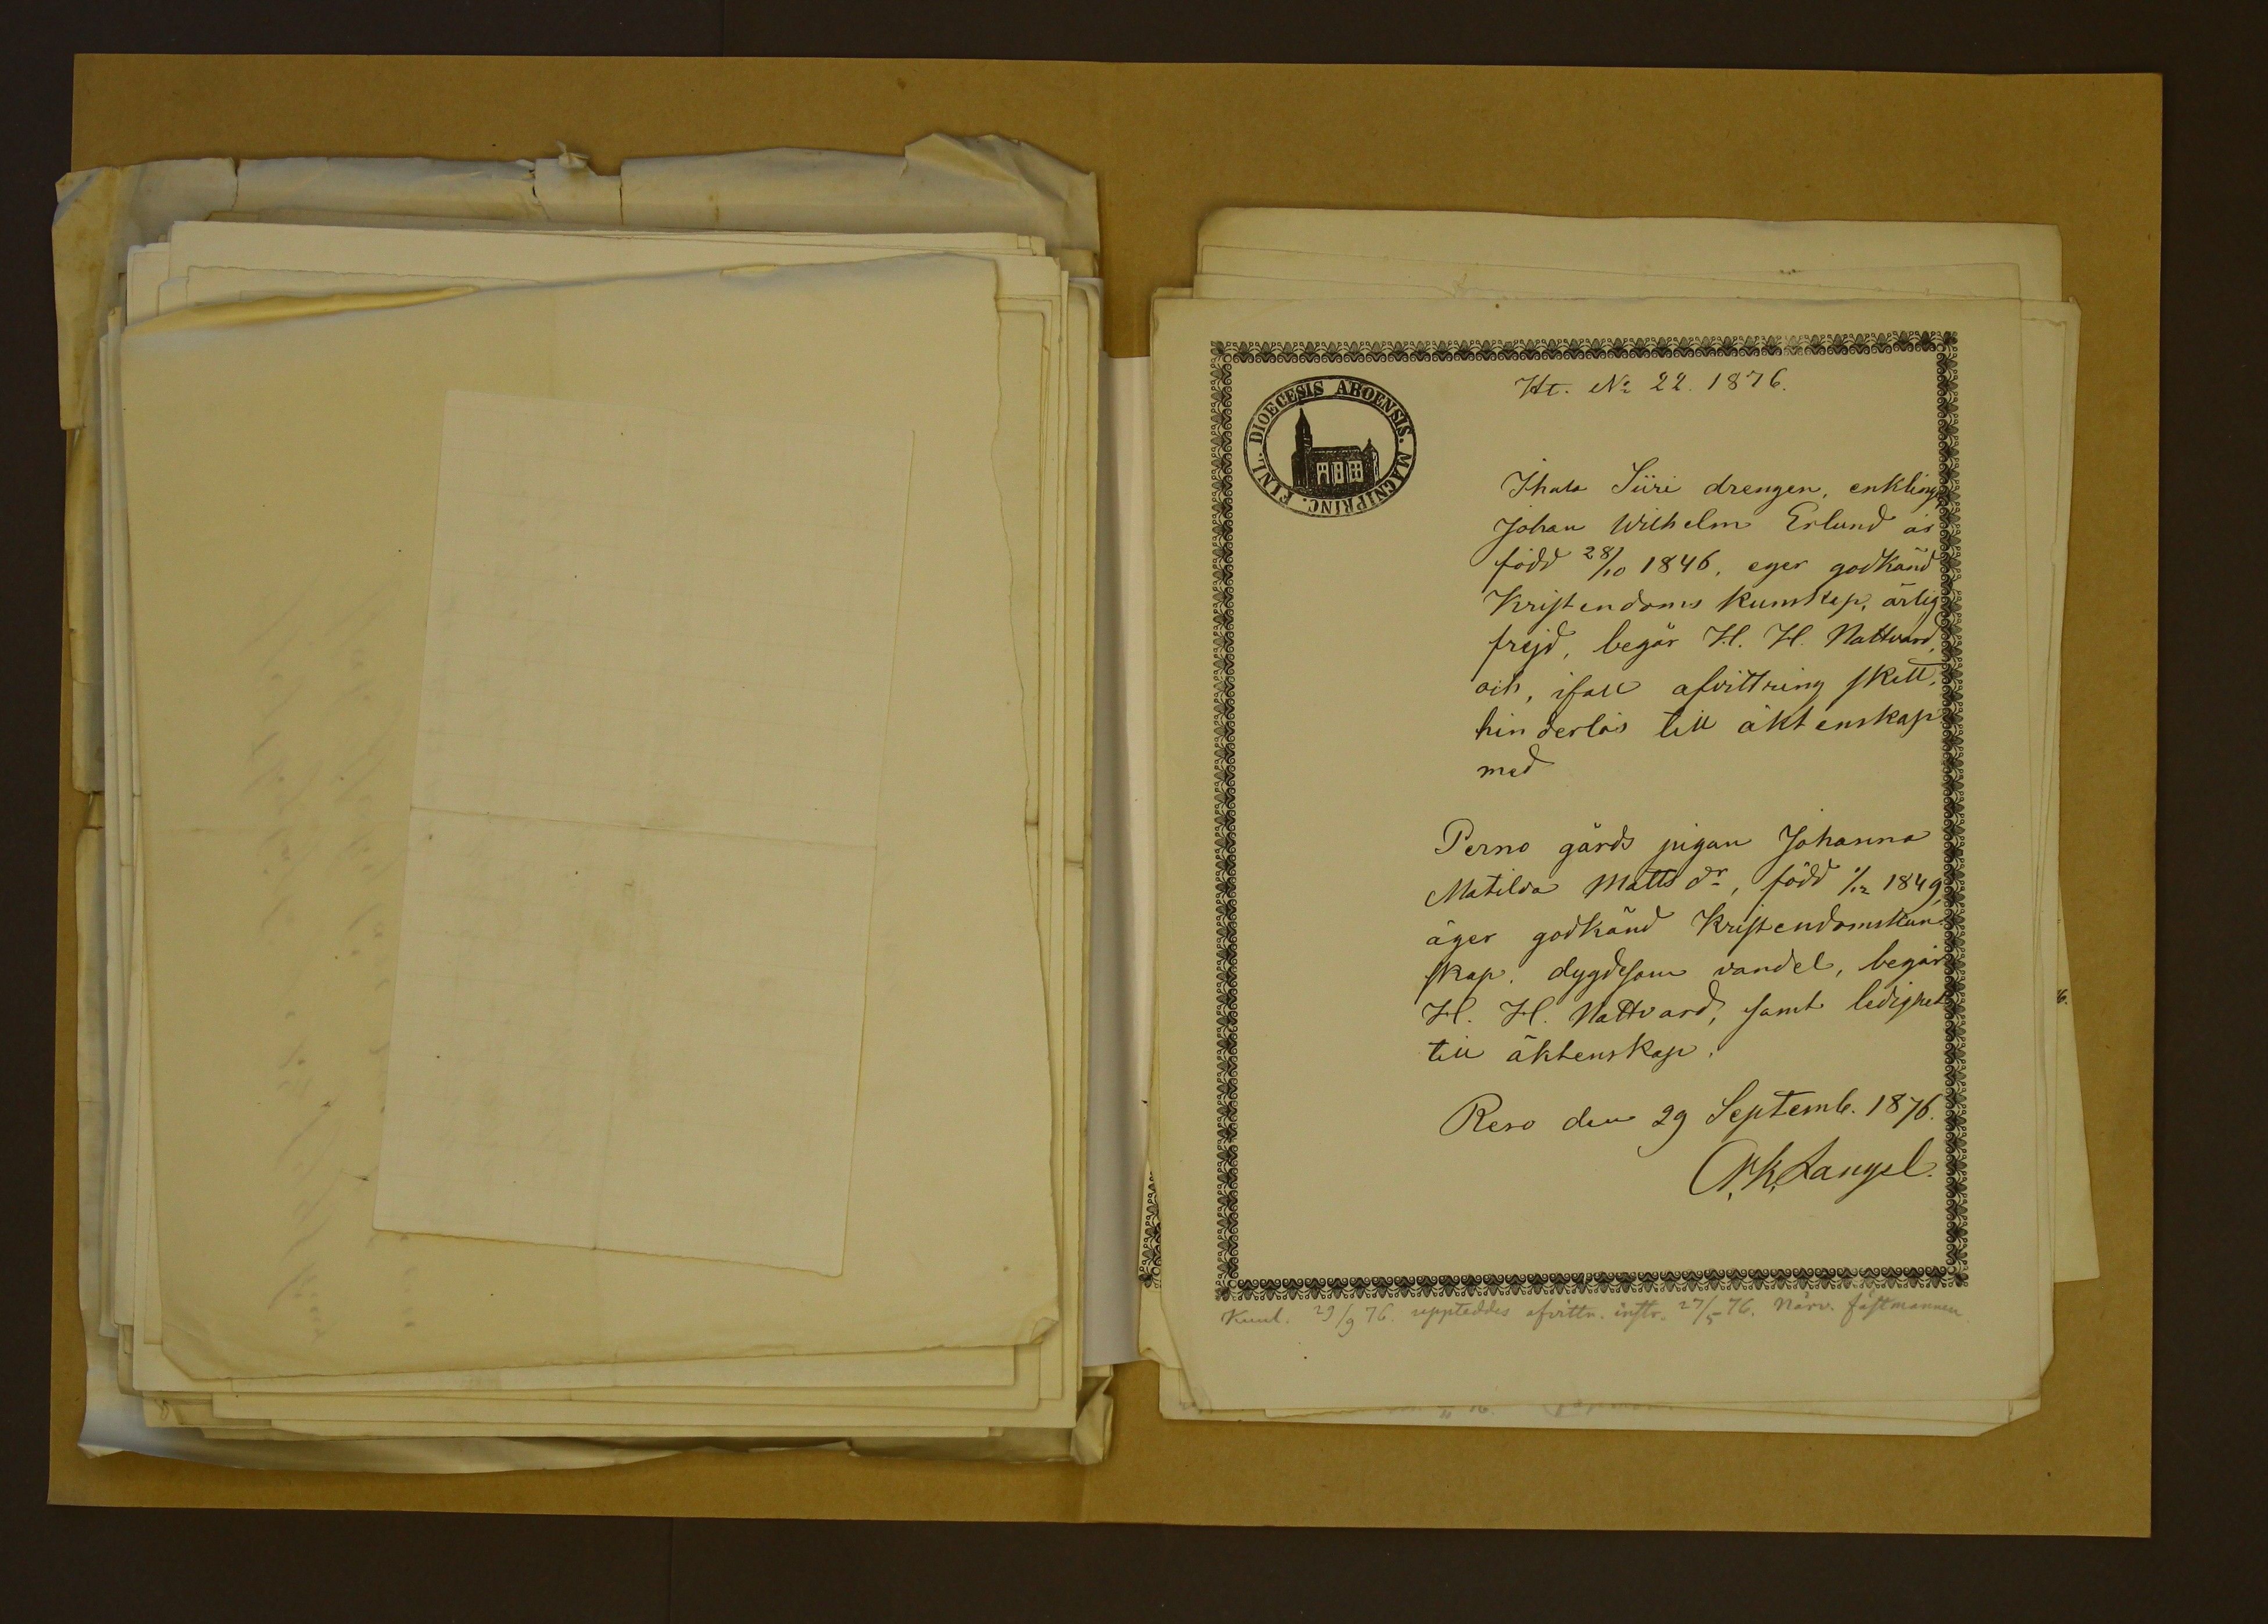 Kt. No 22. 1876.
DIOECESIS ABOENSIS. MAGNIPRINC. FINL.
Ihala Siiri drengen, enklingen
Johan Wilhelm Erlund är
född 28/10 1846, eger godkänd
Kristendoms kunskap, ärlig
frejd, begår H. H. Nattvard,
och, ifall afvittring skett,
hinderlös till äktenskap
med
Perno gårds pigan Johanna
Matilda Matts dr, född 1/12 1849,
äger godkänd Kristendomskun-
skap, dygdesam vandel, begår
H. H. Nattvard, samt ledighet
till äktenskap.
Reso den 29 Septemb. 1876.
Langel.
Kunl. 29/9 76. uppteddes afvittr. instr. 27/5 76. Närv. fästmannen